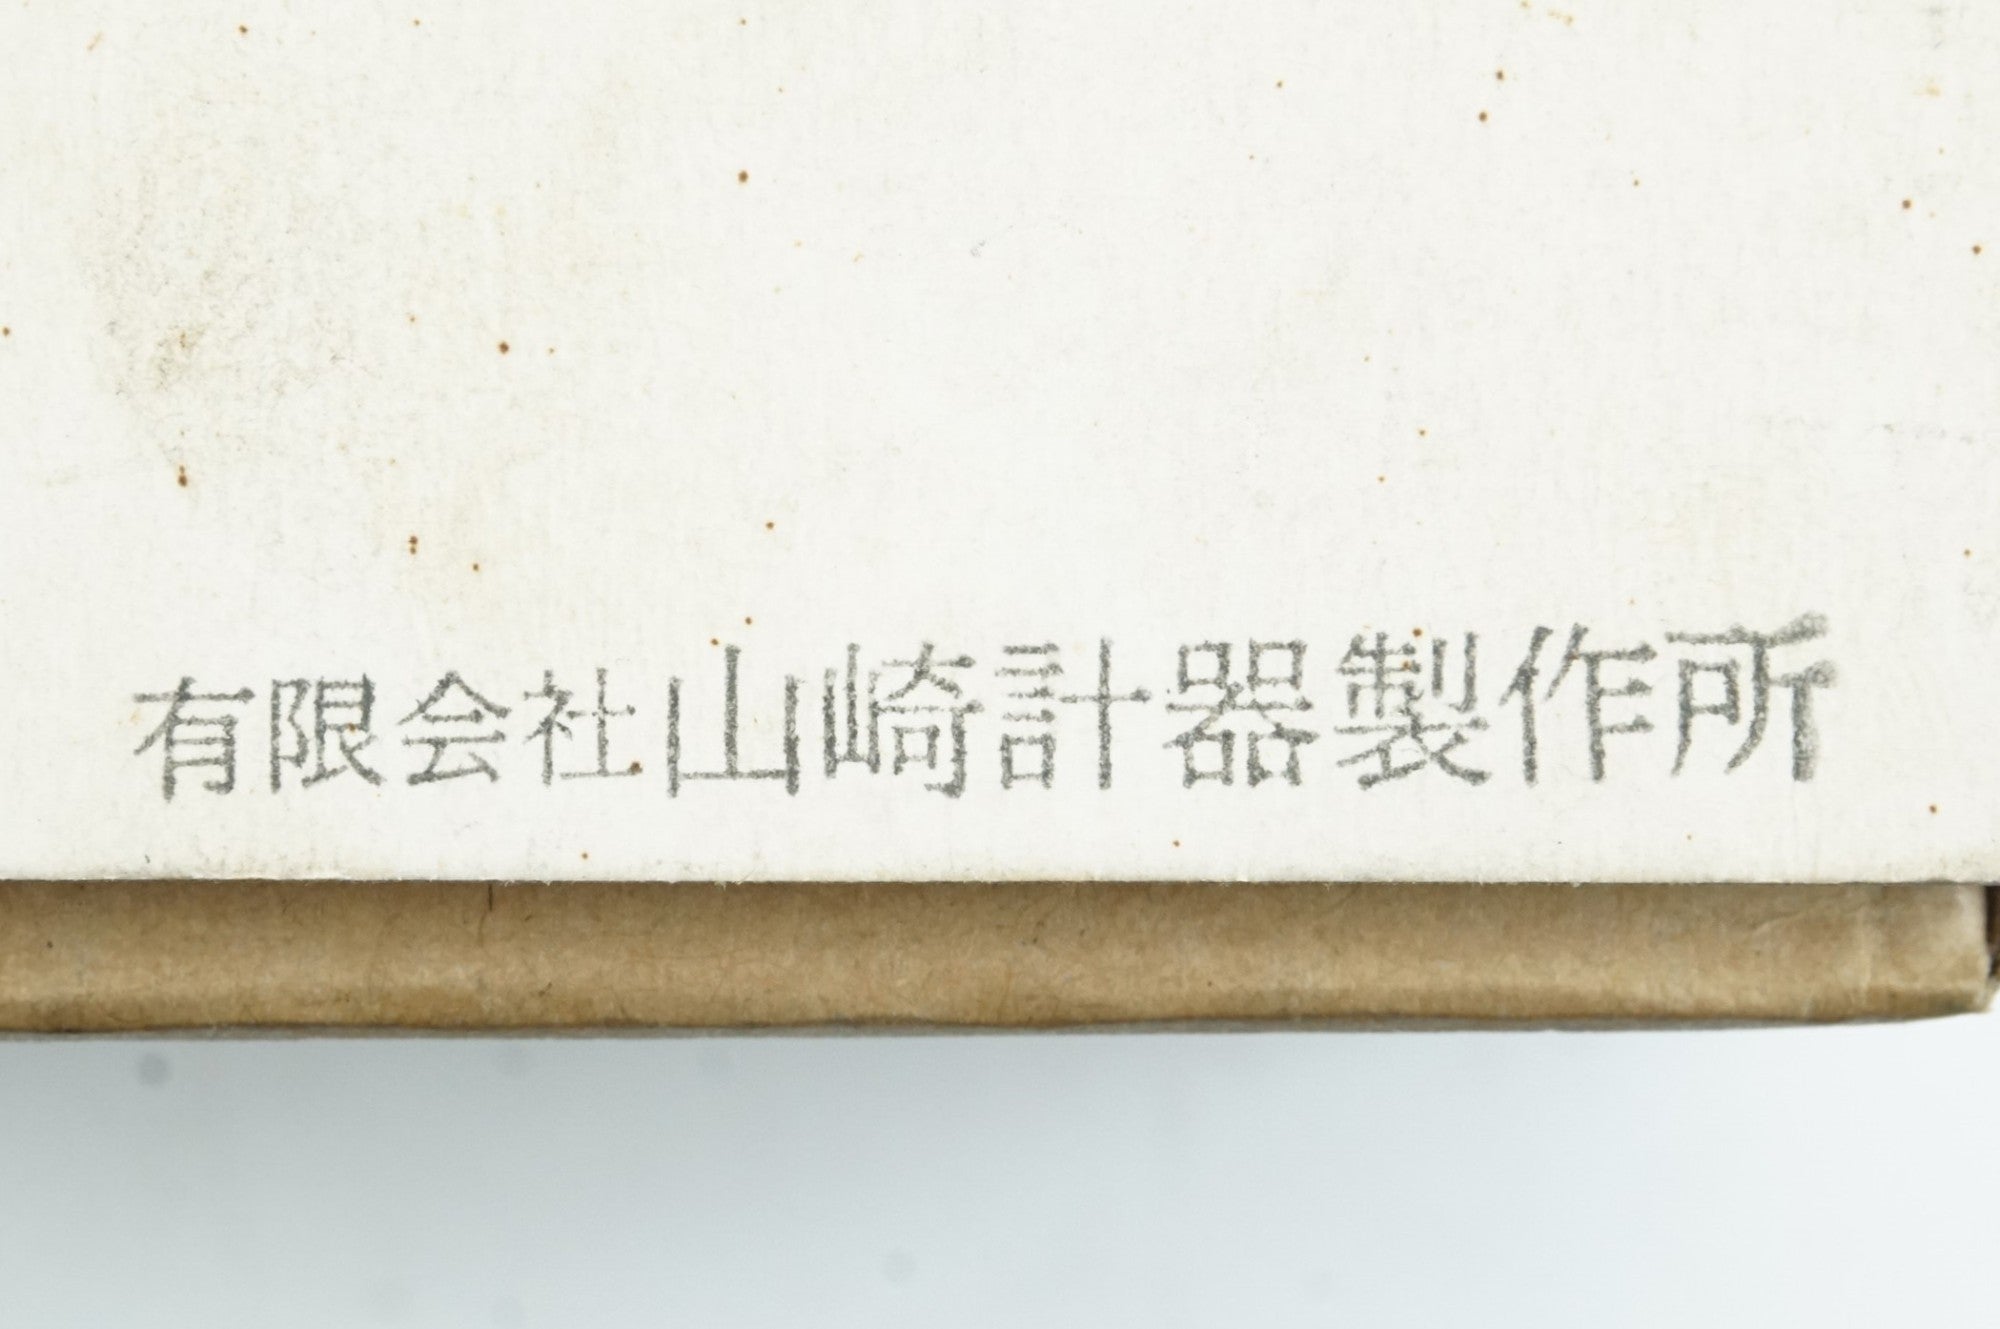 有限会社山崎計器製作所